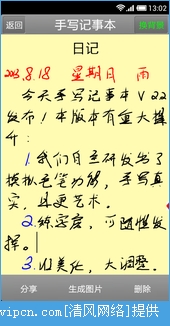 13:02
返回 手写记事本 换背景
日记
2013.8.18 星期日 雨
今天手写记事本 V22
发布!本版本有重大提
升:
1.我们自主研发出了
模拟毛笔功能,手写真
实,且更艺术。
2.综字宽,可随性发
挥。
3.UI美化,大调整.
分享 生成图片 删除
vipcn.com [清风网络]提供